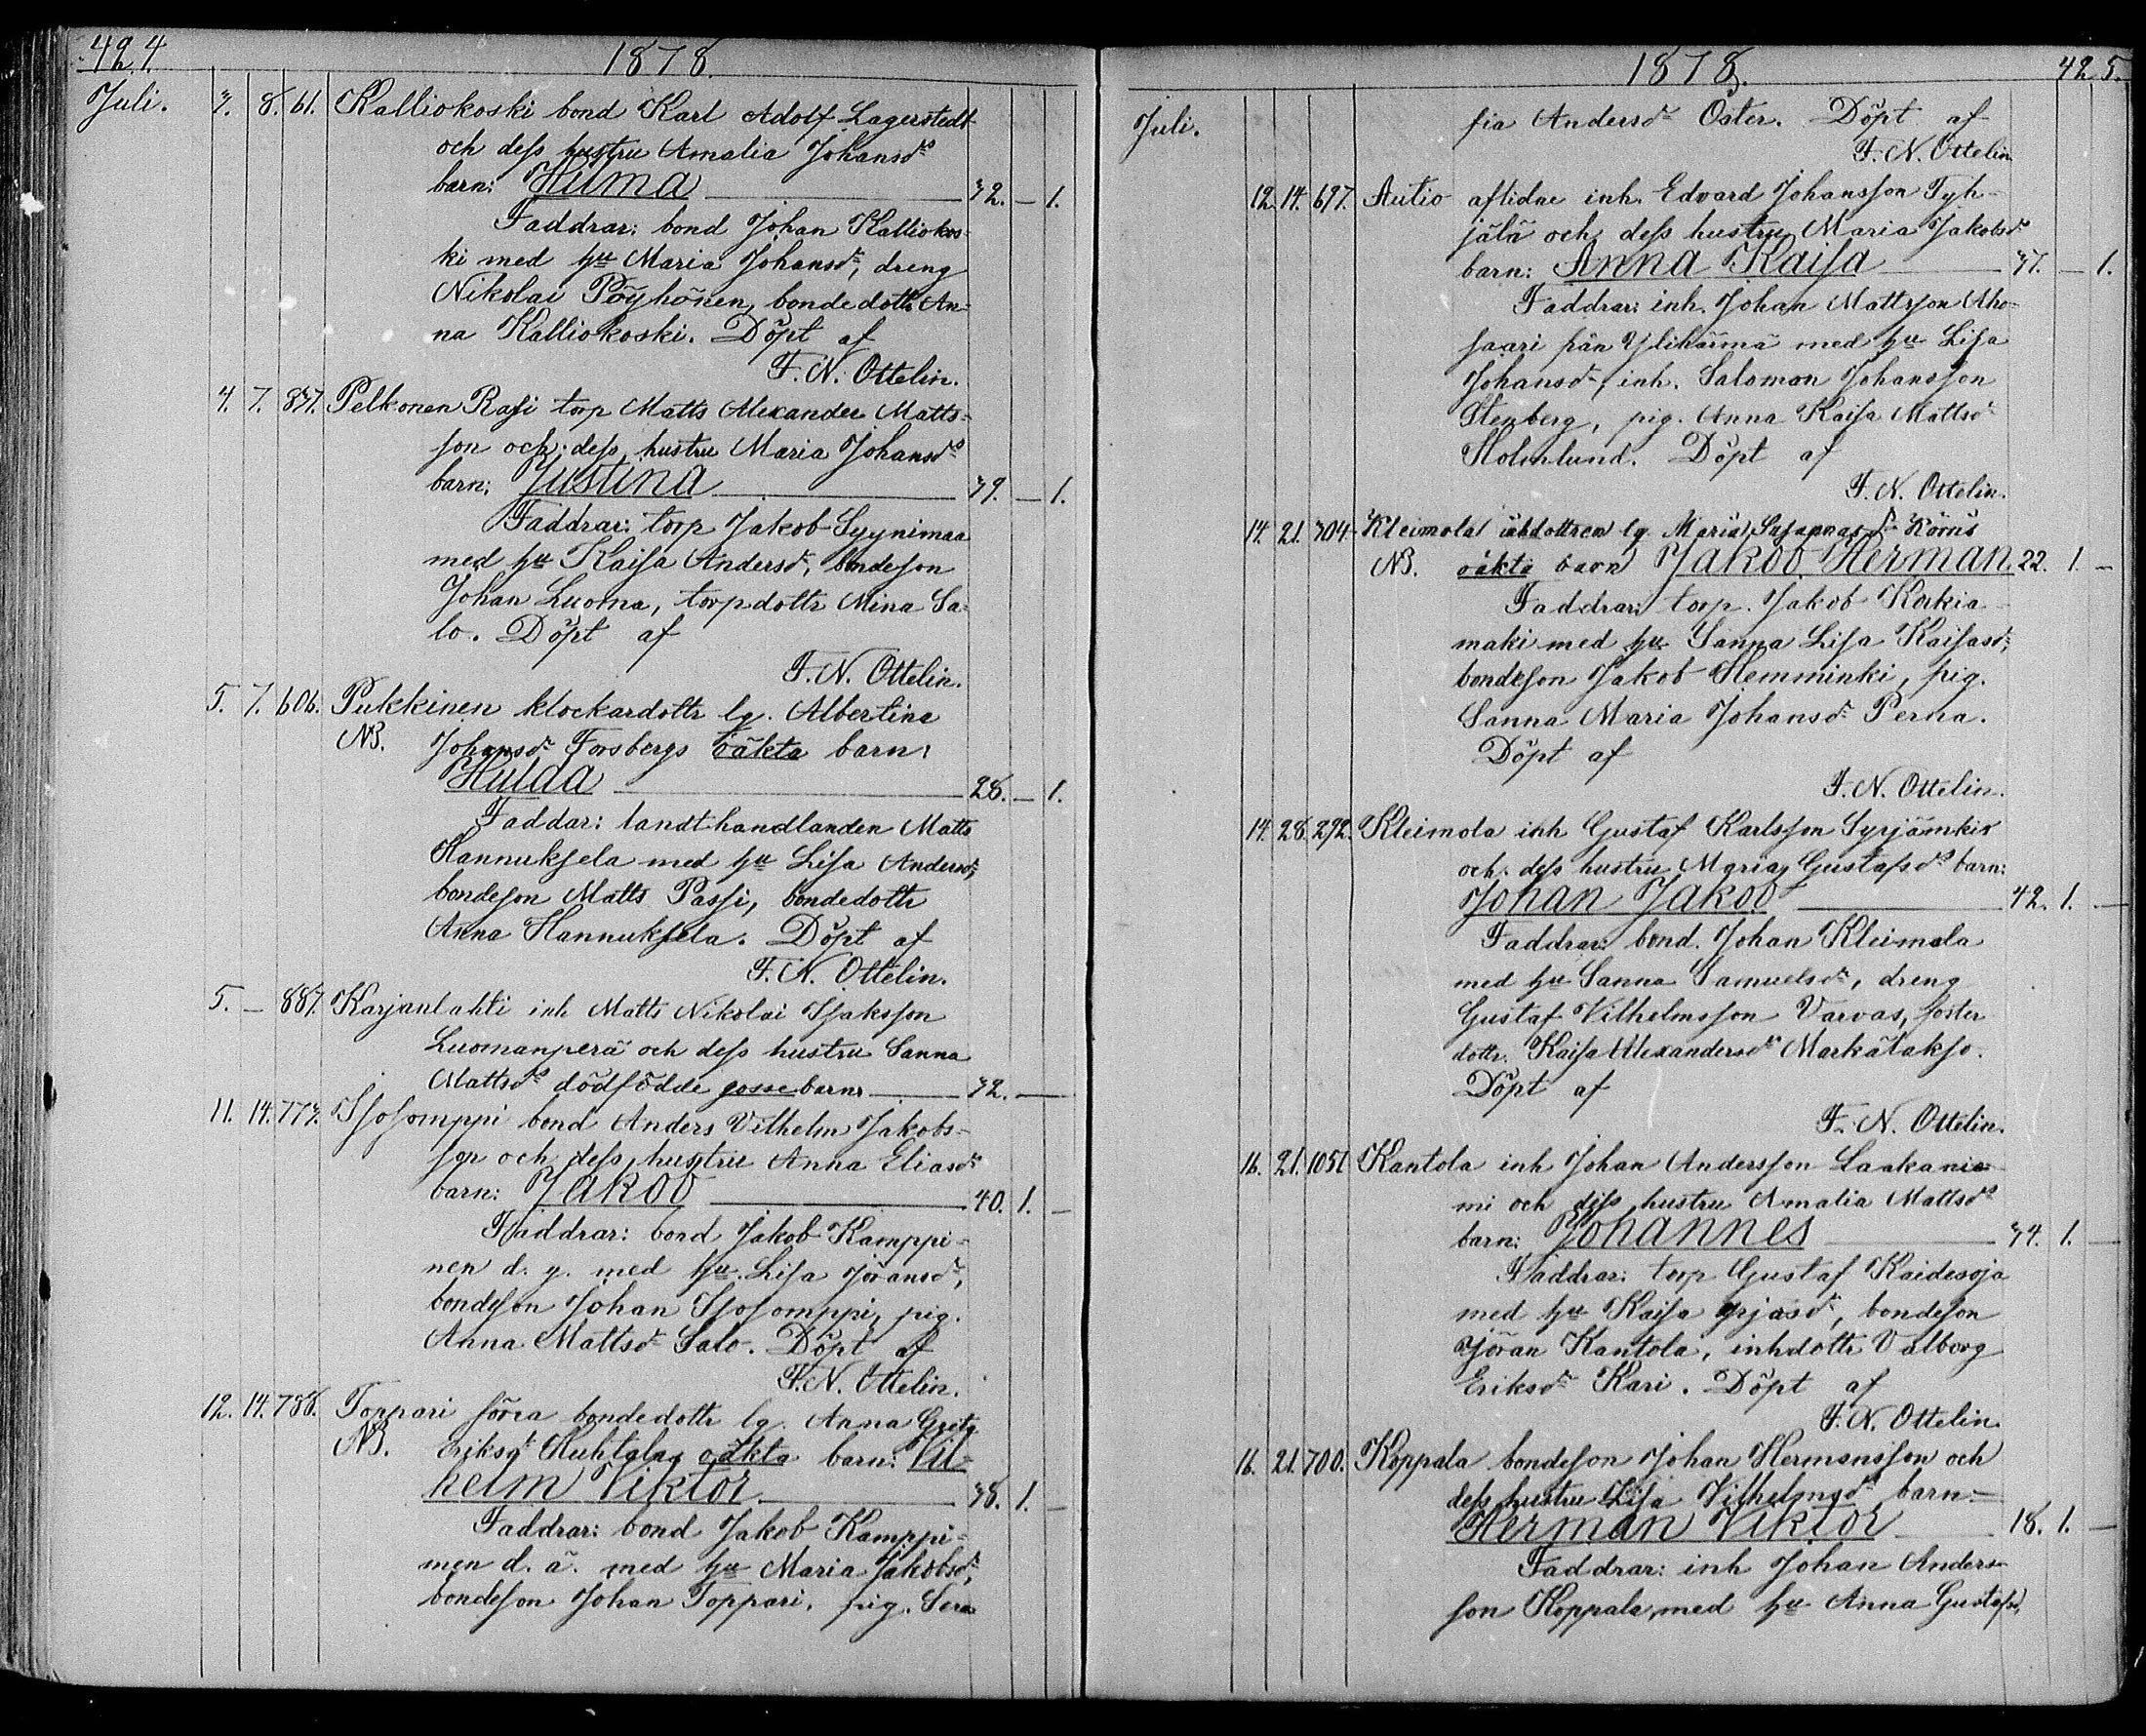 424. 1878.
Juli. 3. 8. 61. Kalliokoski bond Karl Adolf Lagerstedt
och dess hustru Amalia Johansdrs
barn: Hilma 32. — 1.
Faddrar: bond Johan Kalliokos-
ki med hu Maria Johansdr, dreng
Nikolai Pöyhönen, bondedottr An-
na Kalliokoski. Döpt af
F. N. Ottelin.
4. 7. 837. Pelkonen Rasi torp Matts Alexander Matts-
son och dess hustru Maria Johansdrs
barn: Justina 39. — 1.
Faddrar: torp Jakob Syynimaa
med hu Kaisa Andersdr, bondeson
Johan Luoma, torpdottr Mina Sa-
lo. Döpt af
F. N. Ottelin.
5. 7. 606. Pukkinen klockardottr lg. Albertina
NB. Johansdr Forsbergs oäkta barn:
Hulda 28. — 1.
Faddar: landthandlanden Matts
Hannuksela med hu Lisa Andersdr,
bondeson Matts Passi, bondedottr
Anna Hannuksela. Döpt af
F. N. Ottelin.
5. — 887. Karjanlahti inh Matts Nikolai Isaksson
Luomanperä och dess hustru Sanna
Mattsdrs dödfödde gossebarn 32. —
11. 14. 773. Isosomppi bond Anders Vilhelm Jakobs-
son och dess hustru Anna Eliasdrs
barn: Jakob 40. 1. —
Faddrar: bond Jakob Kamppi-
nen d. y. med hu Lisa Jöransdr,
bondeson Johan Isosomppi, pig.
Anna Mattsdr Salo. Döpt af
F. N. Ottelin.
12. 14. 788. Toppari förra bondedottr lg. Anna Greta
NB. Eriksdr Huhtalas oäkta barn: Vil-
helm Viktor 38. 1. —
Faddrar: bond Jakob Kamppi-
nen d. ä. med hu Maria Jakobsdr,
bondeson Johan Toppari, pig. Sera
1878. 425.
Juli. fia Andersdr Öster. Döpt af
F. N. Ottelin.
12. 14. 697. Autio aflidne inh. Edvard Johansson Tyh-
jälä och dess hustru Maria Jakobsdrs
barn: Anna Kaisa 37. — 1.
Faddrar: inh. Johan Mattsson Aho-
saari från Ylihärmä med hu Lisa
Johansdr, inh. Salomon Johansson
Stenberg, pig. Anna Kaisa Mattsdr
Holmlund. Döpt af
F. N. Ottelin.
14. 21. 304. Kleimola inhdottren lg. Maria Susannasdr
NB. oäkta barn Jakob Herman. 22. 1. —
Faddrar: torp. Jakob Korkia-
maki med hu Sanna Lisa Kaisasdr,
bondeson Jakob Hemminki, pig.
Sanna Maria Johansdr Perna.
Döpt af
F. N. Ottelin.
14. 28. 292. Kleimola inh Gustaf Karlsson Syrjämkis
och dess hustru Maria Gustafsdrs barn:
Johan Jakob 42. 1. —
Faddrar: bond. Johan Kleimola
med hu Sanna Samuelsdr, dreng
Gustaf Vilhelmsson Varvas, foster
dottr. Kaisa Alexandersdr Markätakso.
Döpt af
F. N. Ottelin.
16. 21. 1051 Kantola inh Johan Andersson Laakanie-
mi och dess hustru Amalia Mattsdrs
barn: Johannes 34. 1. —
Faddrar: torp Gustaf Kaidesoja
med hu Kaisa Yrjasdr, bondeson
Yöran Kantola, inhdottr Valborg
Eriksdr Kari. Döpt af
F. N. Ottelin.
16. 21. 700. Koppala bondeson Johan Hermansson och
dess hustru Lisa Vilhelmsdrs barn:
Herman Viktor 18. 1. —
Faddrar: inh Johan Anders-
son Koppala, med hu Anna Gustafsdr,